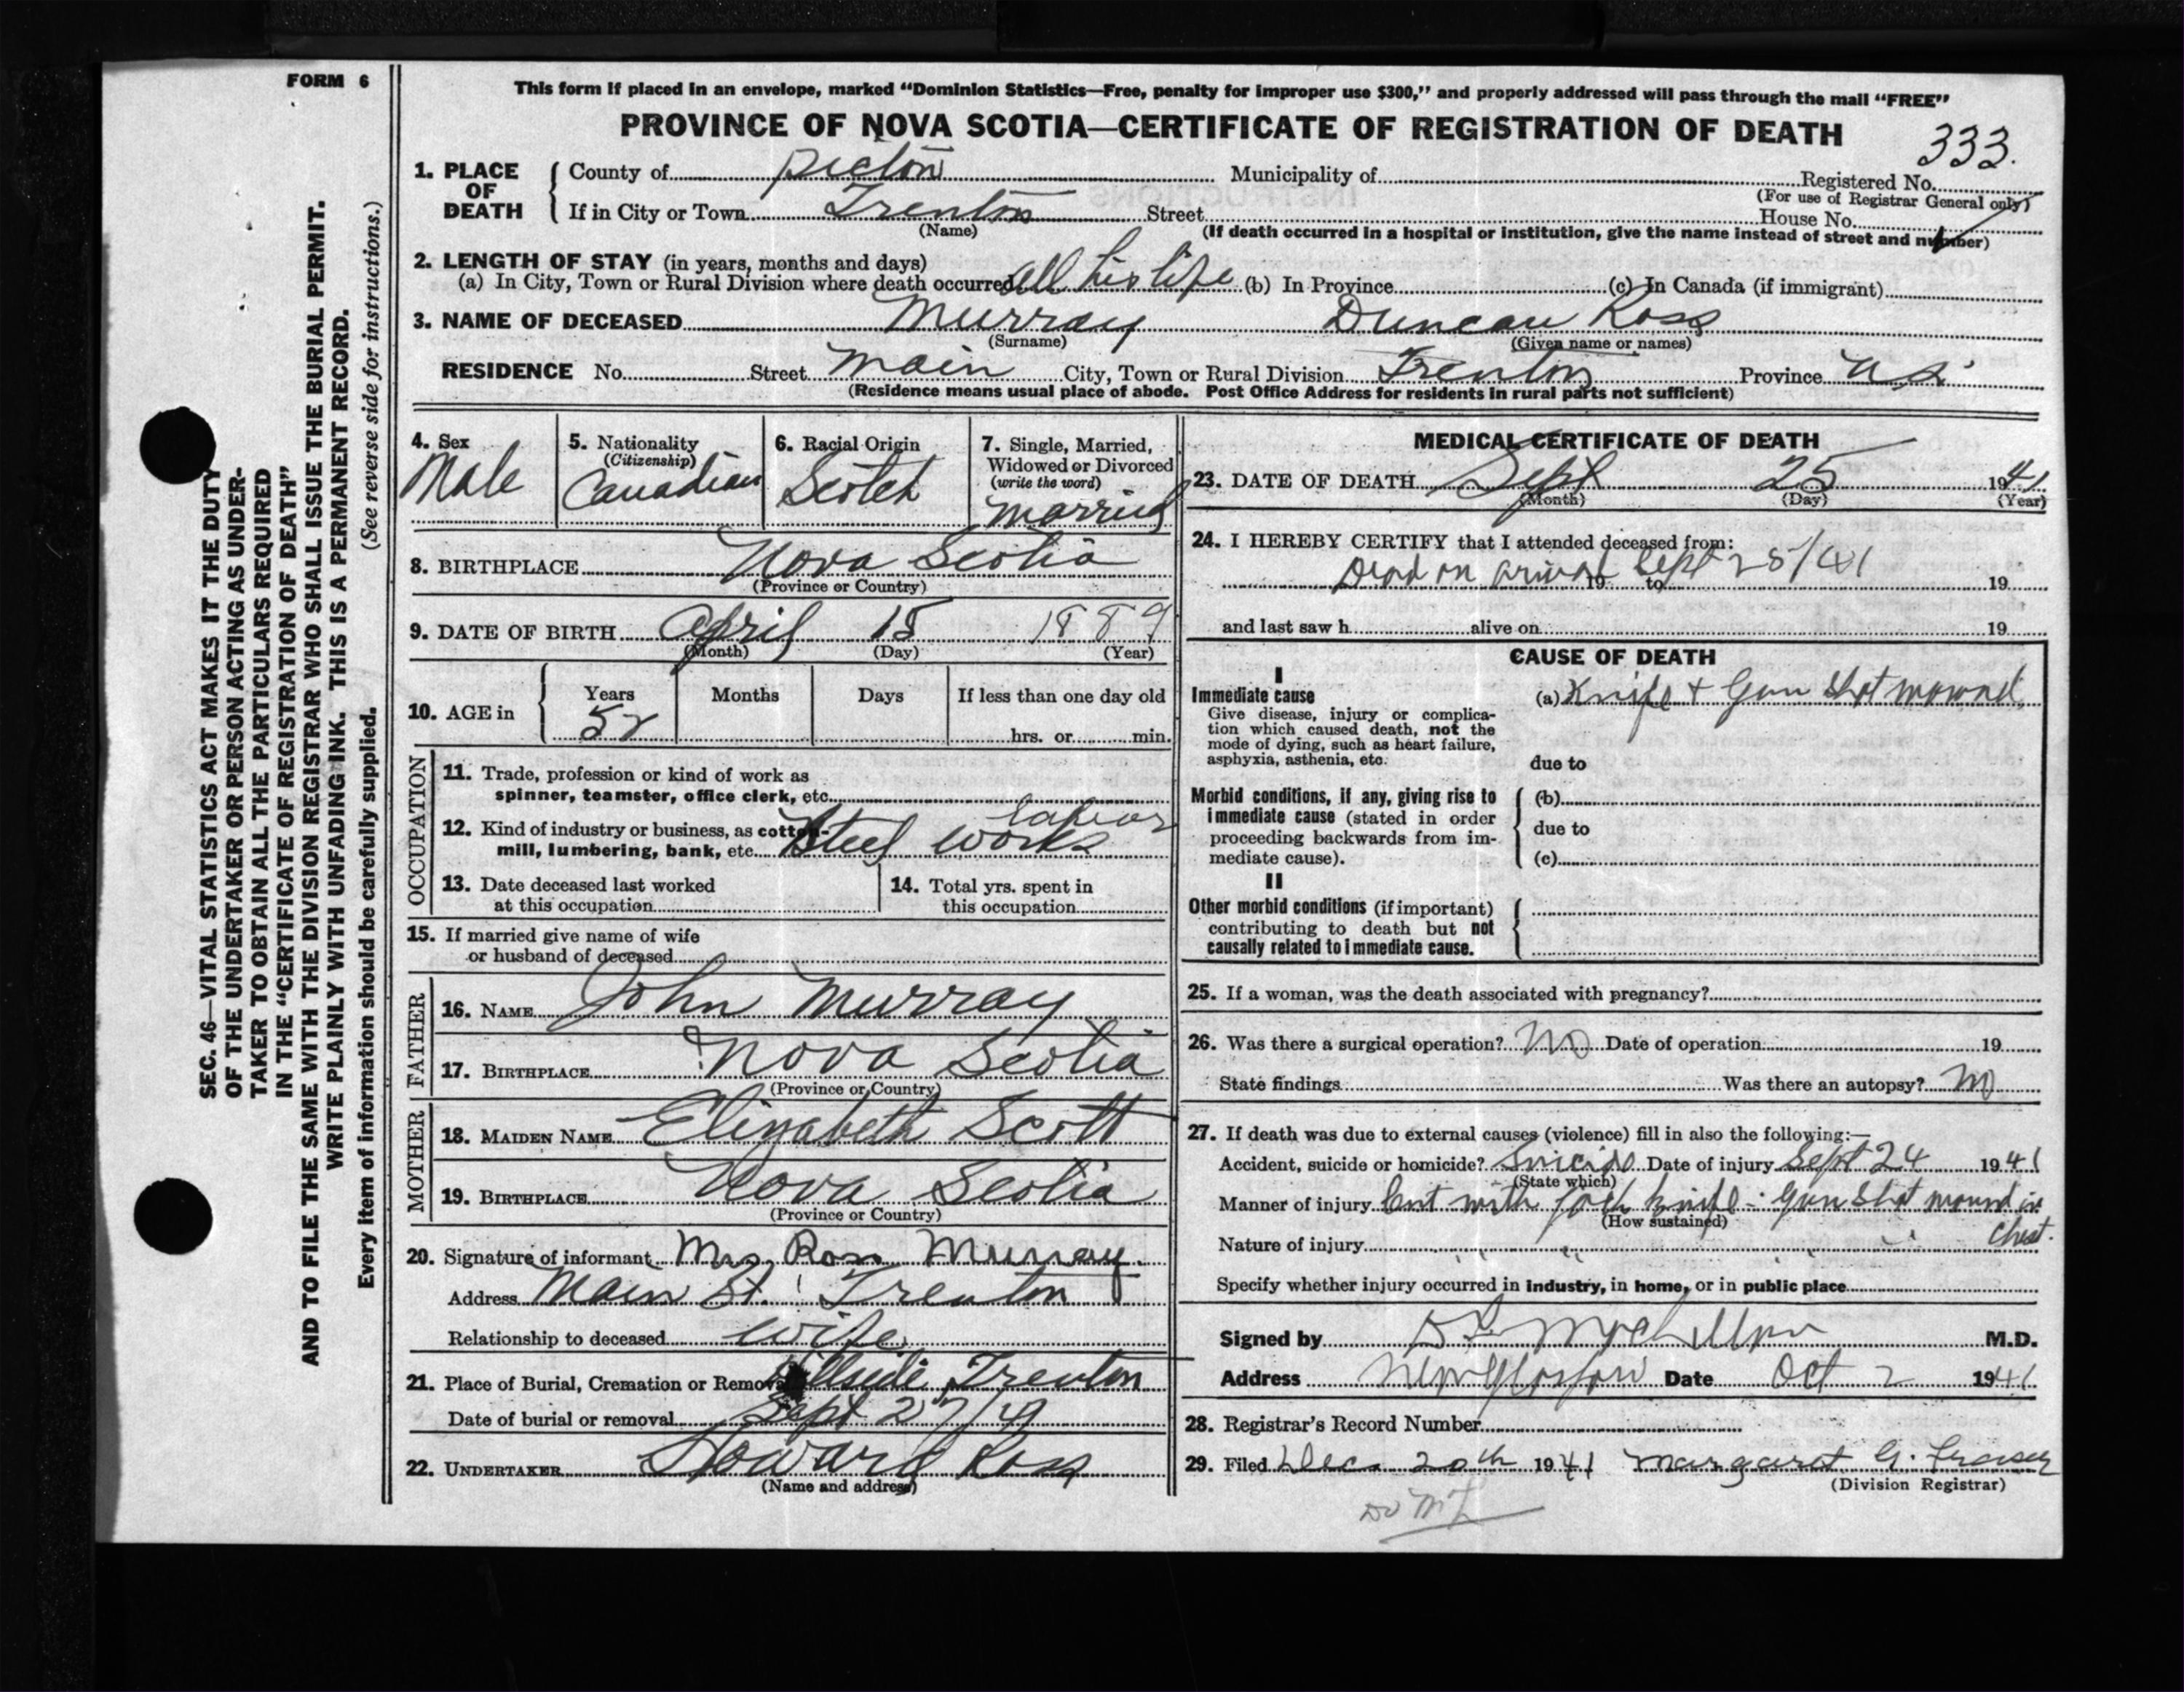 FORM 6
This form if placed in an envelope, marked "Dominion Statistics—Free, penalty for improper use $300," and properly addressed will pass through the mail "FREE"
PROVINCE OF NOVA SCOTIA—CERTIFICATE OF REGISTRATION OF DEATH
333.
1. PLACE OF DEATH County of Pictou Municipality of Registered No.
(For use of Registrar General only)
If in City or Town Trenton Street House No.
(Name) (If death occurred in a hospital or institution, give the name instead of street and number)
2. LENGTH OF STAY (in years, months and days)
(a) In City, Town or Rural Division where death occurred All his life (b) In Province (c) In Canada (if immigrant)
3. NAME OF DECEASED Murray Duncan Ross
(Surname) (Given name or names)
RESIDENCE No. Street Main City, Town or Rural Division Trenton Province N S
(Residence means usual place of abode. Post Office Address for residents in rural parts not sufficient)
4. Sex Male
5. Nationality (Citizenship) Canadian
6. Racial Origin Scotch
7. Single, Married, Widowed or Divorced (write the word) Married
8. BIRTHPLACE Nova Scotia
(Province or Country)
9. DATE OF BIRTH April 15 1889
(Month) (Day) (Year)
10. AGE in Years Months Days If less than one day old
52 hrs. or min.
OCCUPATION
11. Trade, profession or kind of work as
spinner, teamster, office clerk, etc.
labor
12. Kind of industry or business, as cotton-
mill, lumbering, bank, etc. Steel works
13. Date deceased last worked
at this occupation
14. Total yrs. spent in
this occupation
15. If married give name of wife
or husband of deceased
FATHER
16. NAME John Murray
17. BIRTHPLACE Nova Scotia
(Province or Country)
MOTHER
18. MAIDEN NAME Elizabeth Scott
19. BIRTHPLACE Nova Scotia
(Province or Country)
20. Signature of informant Mrs. Ross Murray.
Address Main St. Trenton
Relationship to deceased wife
21. Place of Burial, Cremation or Removal Hillside Trenton
Date of burial or removal Sept 27/41
22. UNDERTAKER Howard Ross
(Name and address)
MEDICAL CERTIFICATE OF DEATH
23. DATE OF DEATH Sept 25 1941
(Month) (Day) (Year)
24. I HEREBY CERTIFY that I attended deceased from:
Dead on arival 19 to Sept 25/41 19
and last saw h alive on 19
CAUSE OF DEATH
I
Immediate cause (a) Knife + Gun shot wound
Give disease, injury or complica-
tion which caused death, not the
mode of dying, such as heart failure,
asphyxia, asthenia, etc. due to
Morbid conditions, if any, giving rise to (b)
immediate cause (stated in order due to
proceeding backwards from im-
mediate cause). (c)
II
Other morbid conditions (if important)
contributing to death but not
causally related to immediate cause.
25. If a woman, was the death associated with pregnancy?
26. Was there a surgical operation? No Date of operation 19
State findings Was there an autopsy? No
27. If death was due to external causes (violence) fill in also the following:—
Accident, suicide or homicide? Suicide Date of injury Sept 24 1941
(State which)
Manner of injury Cut with jack knife - Gun shot wound in
(How sustained)
chest.
Nature of injury
Specify whether injury occurred in industry, in home, or in public place
Signed by M.D.
Address New Glasgow Date Oct 2 1941
28. Registrar's Record Number
29. Filed Dec. 20th 1941 Margaret G. Fraser
(Division Registrar)
SEC. 46—VITAL STATISTICS ACT MAKES IT THE DUTY
OF THE UNDERTAKER OR PERSON ACTING AS UNDER-
TAKER TO OBTAIN ALL THE PARTICULARS REQUIRED
IN THE "CERTIFICATE OF REGISTRATION OF DEATH"
AND TO FILE THE SAME WITH THE DIVISION REGISTRAR WHO SHALL ISSUE THE BURIAL PERMIT.
WRITE PLAINLY WITH UNFADING INK. THIS IS A PERMANENT RECORD.
Every item of information should be carefully supplied. (See reverse side for instructions.)